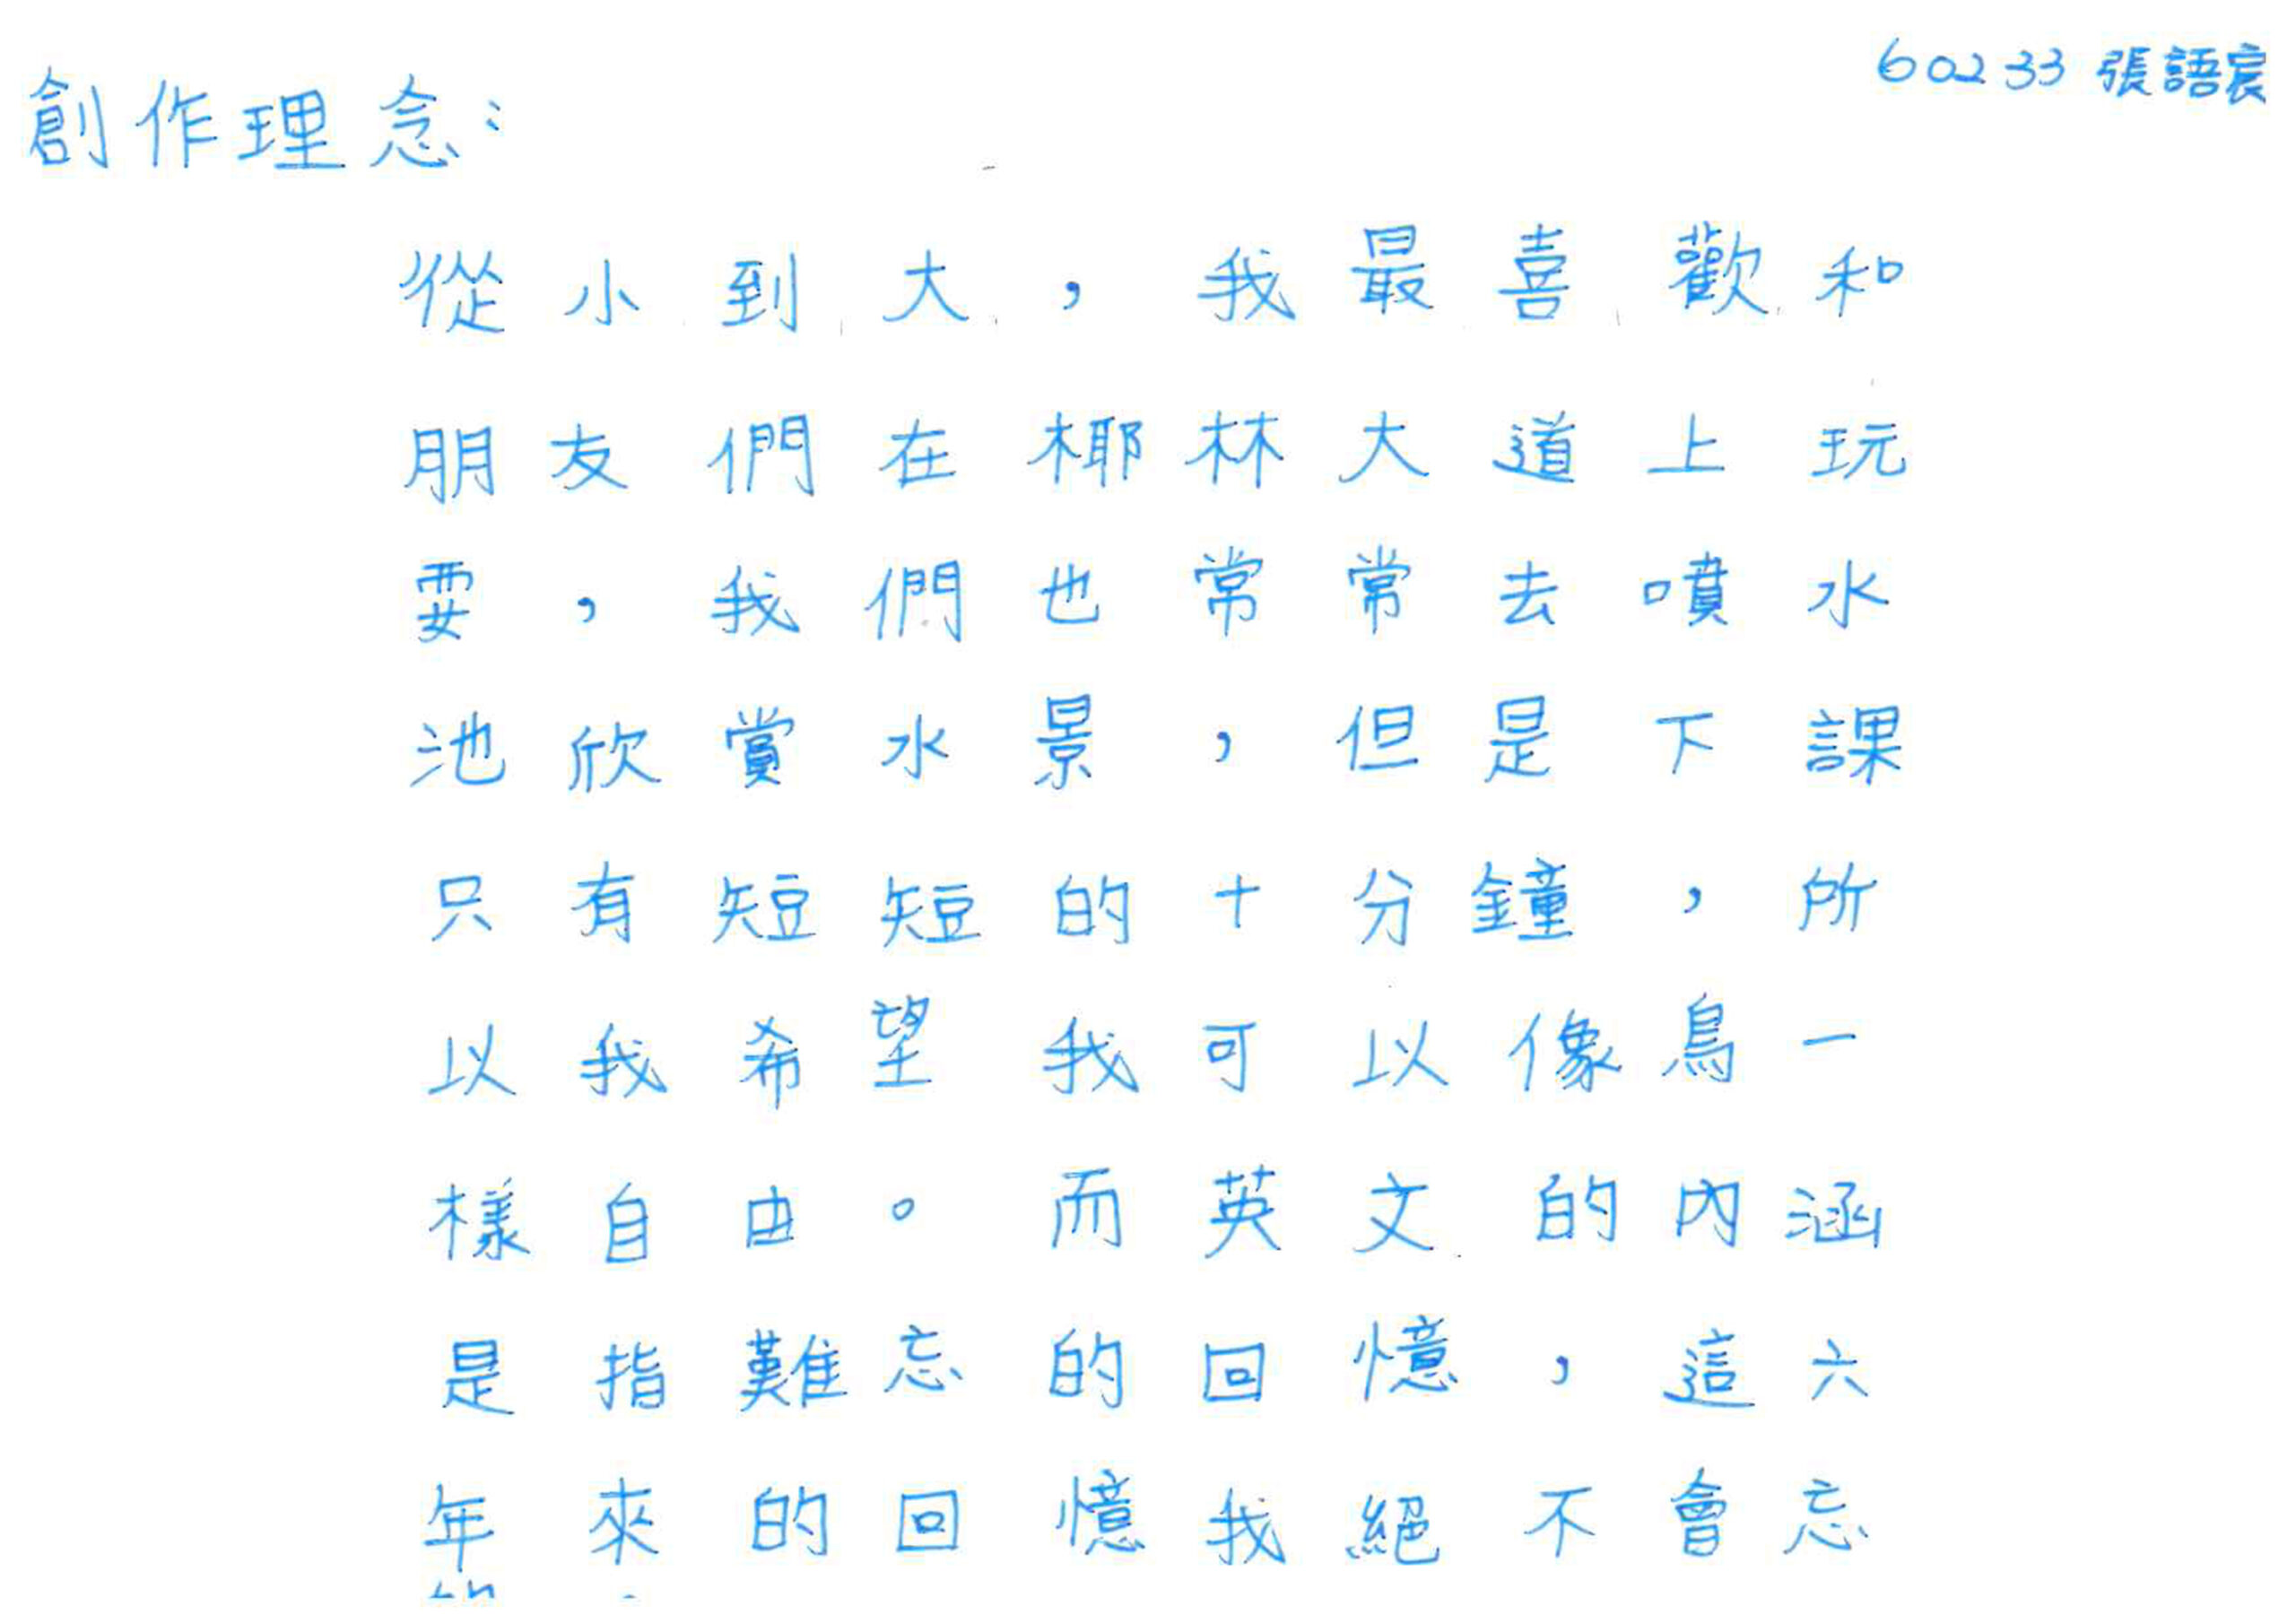 60233 張語宸
創作理念：
從小到大，我最喜歡和
朋友們在椰林大道上玩
耍，我們也常常去噴水
池欣賞水景，但是下課
只有短短的十分鐘，所
以我希望我可以像鳥一
樣自由。而英文的內涵
是指難忘的回憶，這六
年來的回憶我絕不會忘